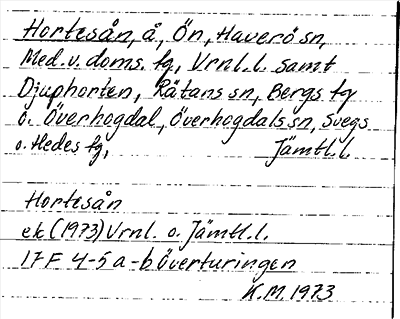 Hortesån, å, Ön, Haverö sn,
Med.v. doms. fg, Vrnl.l. samt
Djuphorten, Rätans sn, Bergs fg
o. Överhogdal, Överhogdals sn, Svegs
o. Hedes fg, Jämtl.l.
Hortesån
ek (1973) Vrnl. o. Jämtl.l.
17F 4-5 a-b Överturingen
K.M. 1973